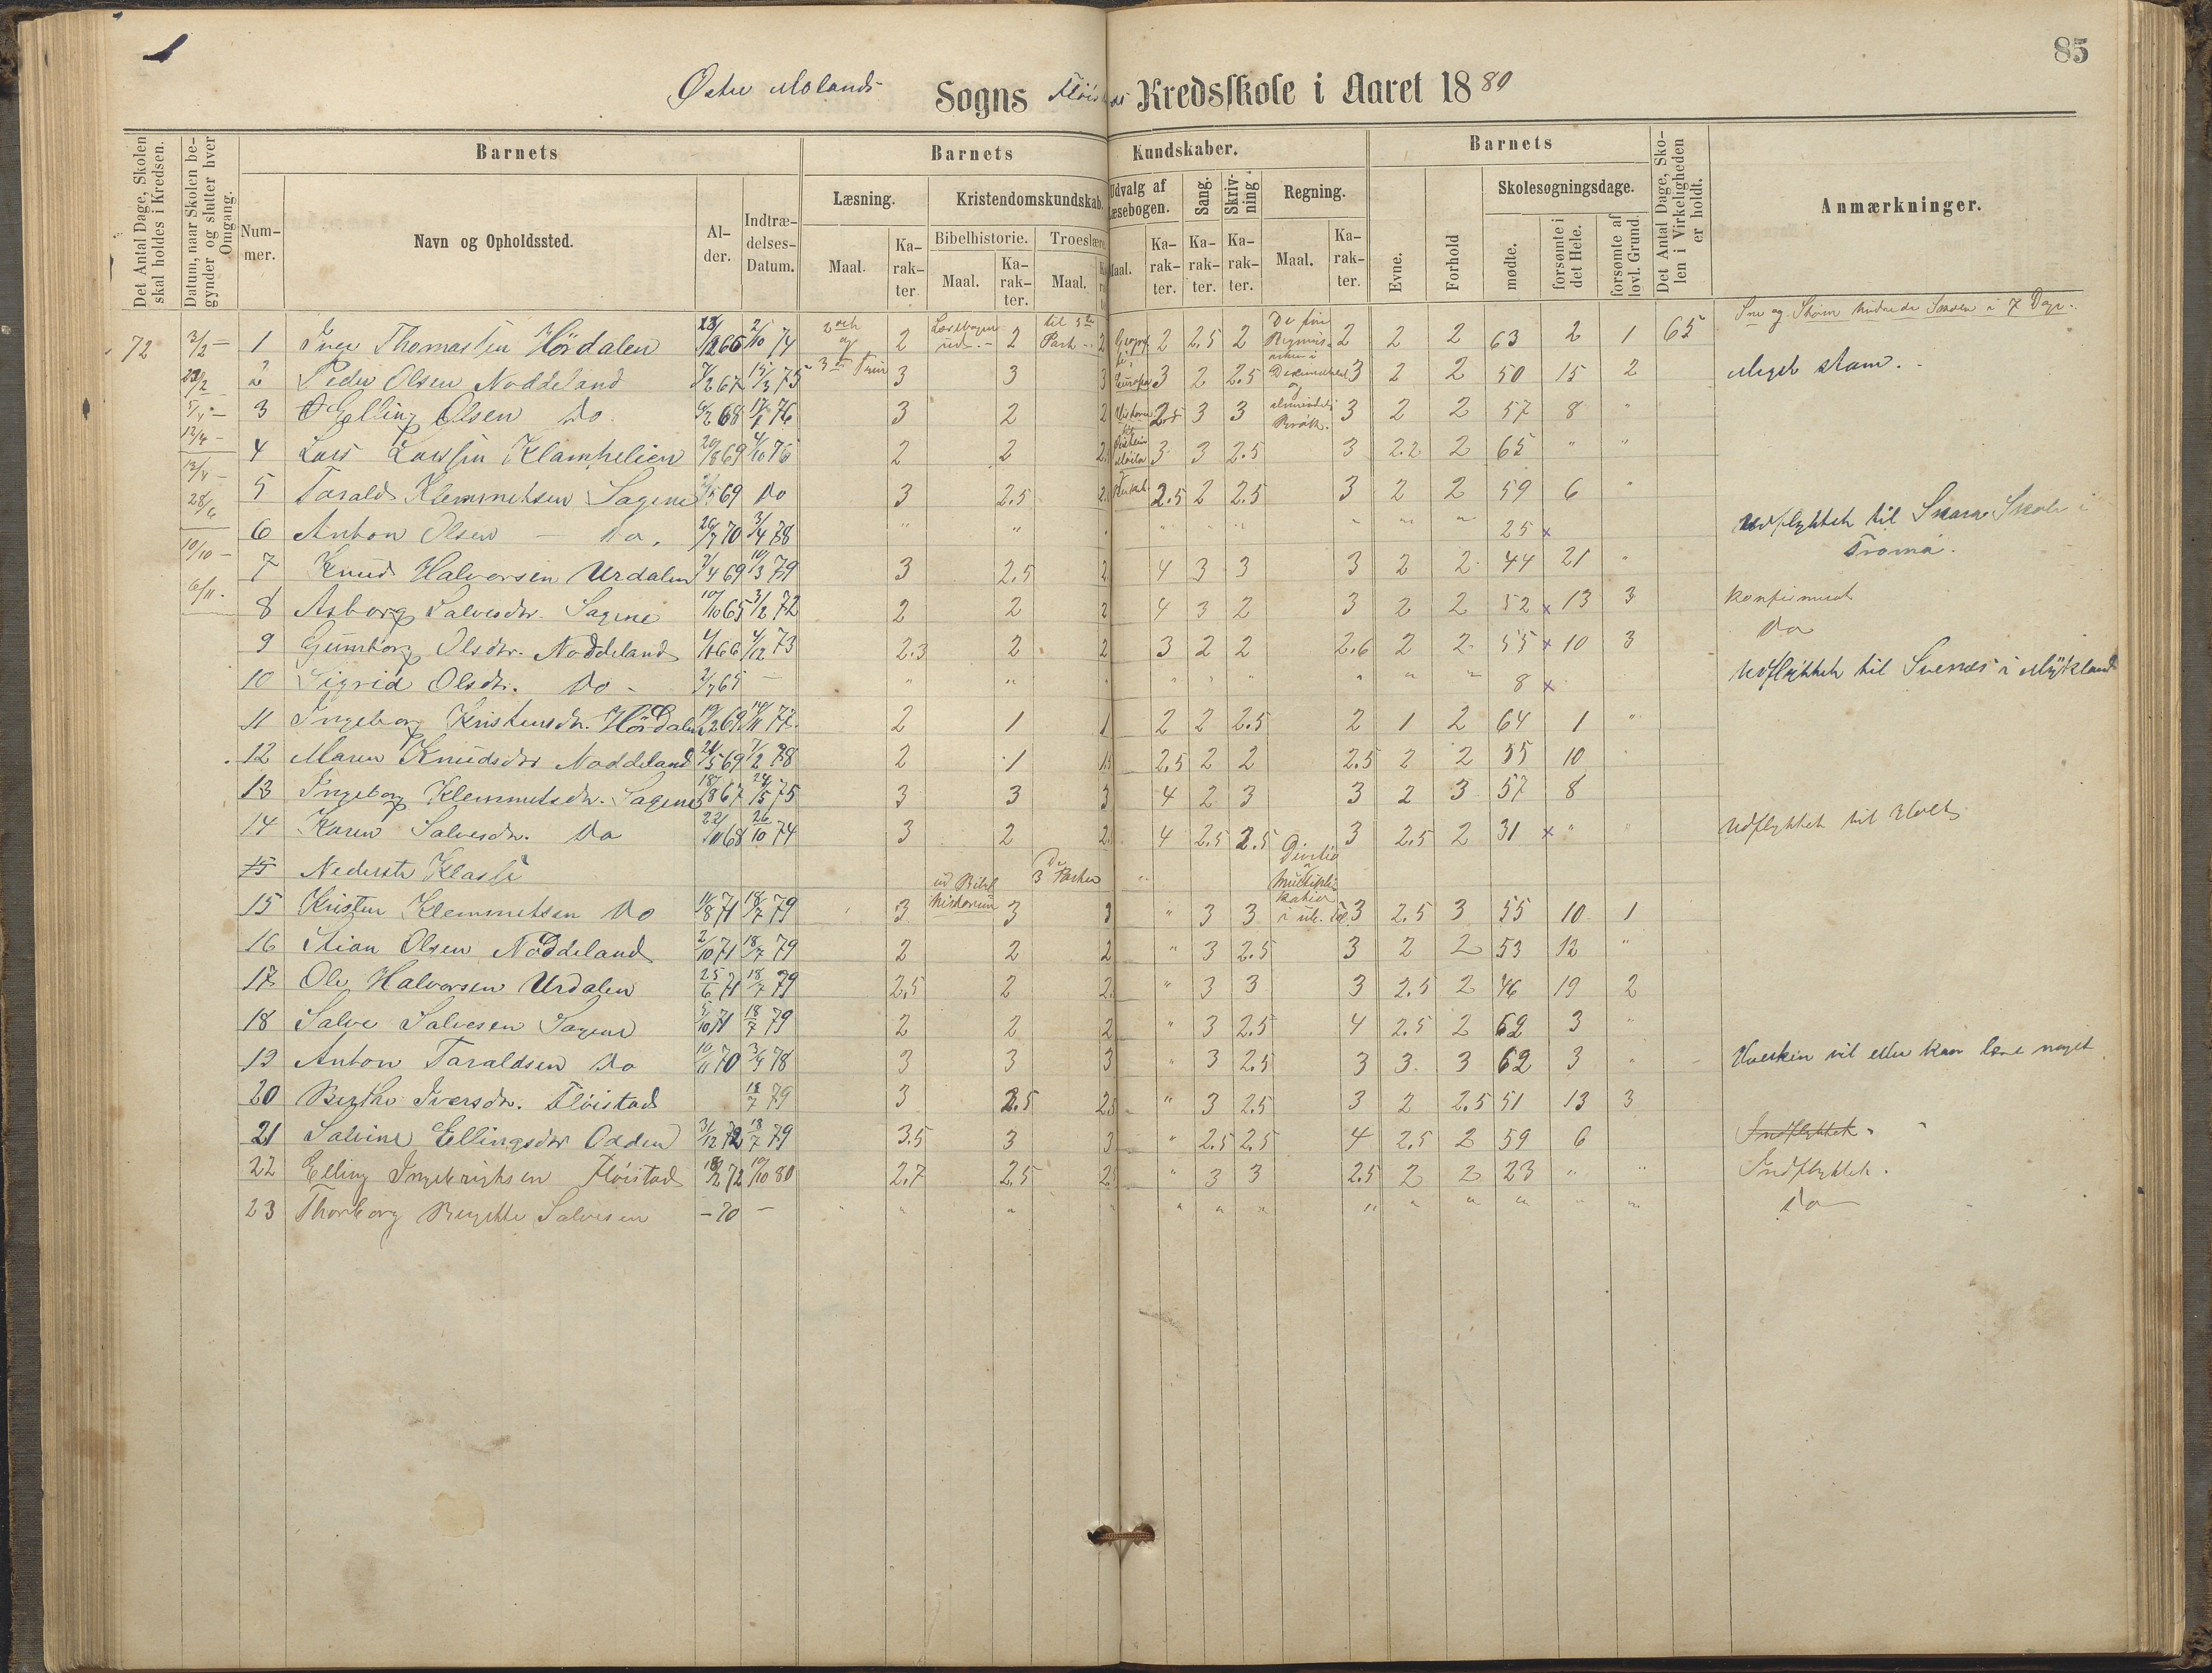 85
Østre Molands Sogns Fløistad Kredsskole i Aaret 1880
Det Antal Dage, Skolen skal holdes i Kredsen.
Datum, naar Skolen begynder og slutter hver Omgang.
Barnets
Barnets Kundskaber.
Barnets
Det Antal Dage, Skolen i Virkeligheden er holdt.
Anmærkninger.
Nummer.
Navn og Opholdssted.
Alder.
Indtrædelses-Datum.
Læsning.
Kristendomskundskab.
Udvalg af Læsebogen.
Sang.
Skrivning.
Regning.
Evne.
Forhold
Skolesøgningsdage.
Bibelhistorie.
Troeslære
Maal.
Karakter
Maal.
Karakter.
Maal.
Maal.
Karakter.
Karakter.
Karakter.
Maal.
Karakter.
mødte.
forsømte i det Hele.
forsømte af lovl. Grund.
Sne og Storm hindrede Skolen i 7 Dage.
72 3/2 — 1 Iver Thomassen Hördalen 2/10 74 2det og 2 Læsebogen ud. 2 til 3die Part 2 2 2.5 2 De fire 2 2 2 63 2 1 65
2 Peder Olsen Noddeland 15/3 75 3die Trin 3 3 3 Europa 3 2 2.5 3 2 2 50 15 2 Meget stam.
5/4 — 3 Elling Olsen Do 3 2 2 2.5 3 3 almindelig Brøk. 3 2 2 57 8 "
12/4 — 4 Lars Larssen Klamhelien 20/8 69 4/10 76 2 2 3 3 2.5 3 2.2 2 65 " "
13/4 — 5 Tarald Klemmetsen Sagene 69 Do 3 2.5 2.5 2 2.5 3 2 2 59 6 "
28/6 6 Anton Olsen — Do. 26/7 70 3/4 78 " " " " " " " " 25 x Udflyttet til Skare Skole i Tromø.
10/10 — 7 Knud Halvorsen Urdalen 2/4 69 10/3 79 3 2.5 2 4 3 3 3 2 2 44 21 "
6/11. 8 Asborg Salvesdtr. Sagene 10/10 65 3/2 72 2 2 2 4 3 2 3 2 2 52 x 13 3 Konfirmeret
9 Gumborg Olsdtr. Noddeland 66 4/12 73 2.3 2 2 3 2 2 2.6 2 2 55 x 10 3 Do
10 Sigrid Olsdtr. Do - 2/7 65 — " " " " " " " " 8 x Udflyttet til Svenes i Mykland
11 Ingeborg Kristensdtr. Hördalen 69 14/11 77 2 1 1 2 2 2.5 2 1 2 64 1 "
12 Maren Knudsdtr Noddeland 21/5 69 7/2 78 2 1 2.5 2 2 2.5 2 2 55 10
13 Ingeborg Klemmetsdtr. Sagene 18/8 67 24/5 75 3 3 3 4 2 3 3 2 3 57 8
14 Karen Salvesdtr. Do 22/10 68 26/10 74 3 2 2 4 2.5 2.5 3 2.5 2 31 x " " Udflyttet til Holt
15 Nederste Klasse
15 Kristen Klemmetsen Do 11/8 71 18/7 79 3 ud Bibelhistorien 3 De 3 Parter 3 " 3 3 3 2.5 3 55 10 1
16 Stian Olsen Noddeland 2/10 71 18/7 79 2 2 2 " 3 2.5 3 2 2 53 12 "
17 Ole Halvorsen Urdalen 25/6 71 18/7 79 2.5 2 2 " 3 3 3 2.5 2 46 19 2
18 Salve Salvesen Sagene 5/10 71 18/7 79 2 2 2 " 3 2.5 4 2.5 2 62 3 "
19 Anton Taraldsen Do 10/11 70 3/4 78 3 3 3 " 3 2.5 3 3 3 62 3 " Hverken vil eller kan lære noget
20 Berthe Iversdtr. Fløistad 18/7 79 3 2.5 2.5 " 3 2.5 3 2 2.5 51 13 3
21 Salvine Ellingsdtr Odden 3/12 72 18/7 79 3.5 3 3 " 2.5 2.5 4 2.5 2 59 6 Indflyttet
22 Elling Ingebrigtsen Fløistad 18/2 72 10/10 80 2.7 2.5 2. " 3 3 2.5 2 2 23 " " Indflyttet.
23 Thorborg Birgitte Salvesen — 70 — " " " " " " " " " " " " Do